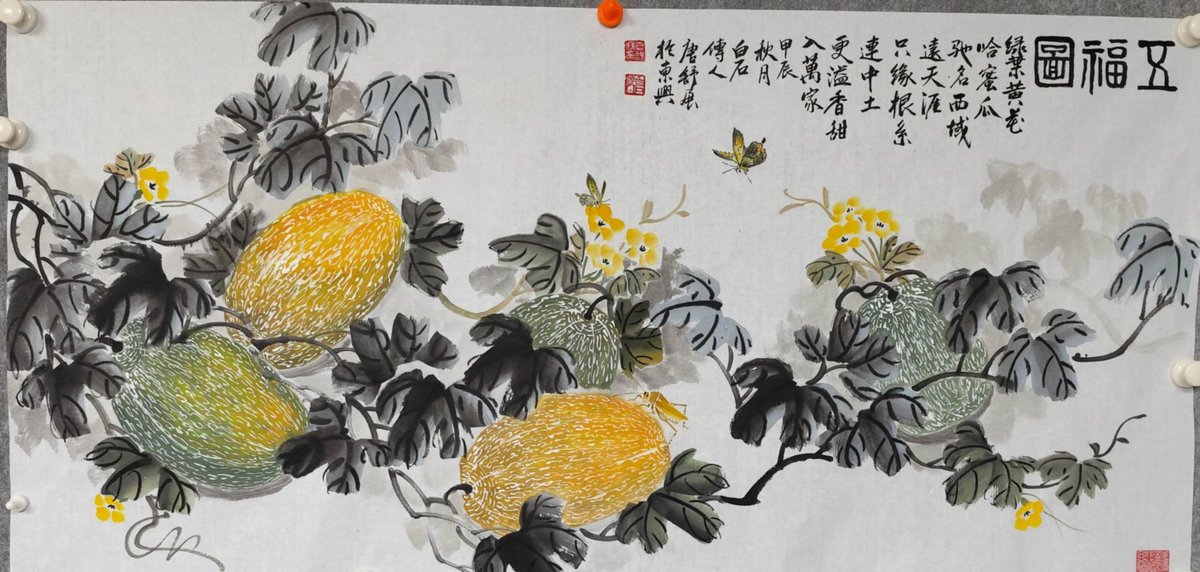 五福圖
綠葉黃花
哈蜜瓜
馳名西域
遠天涯
只緣根系
連中土
更溢香甜
入萬家
甲辰
秋月
白石
傳人
唐舒展
於東興